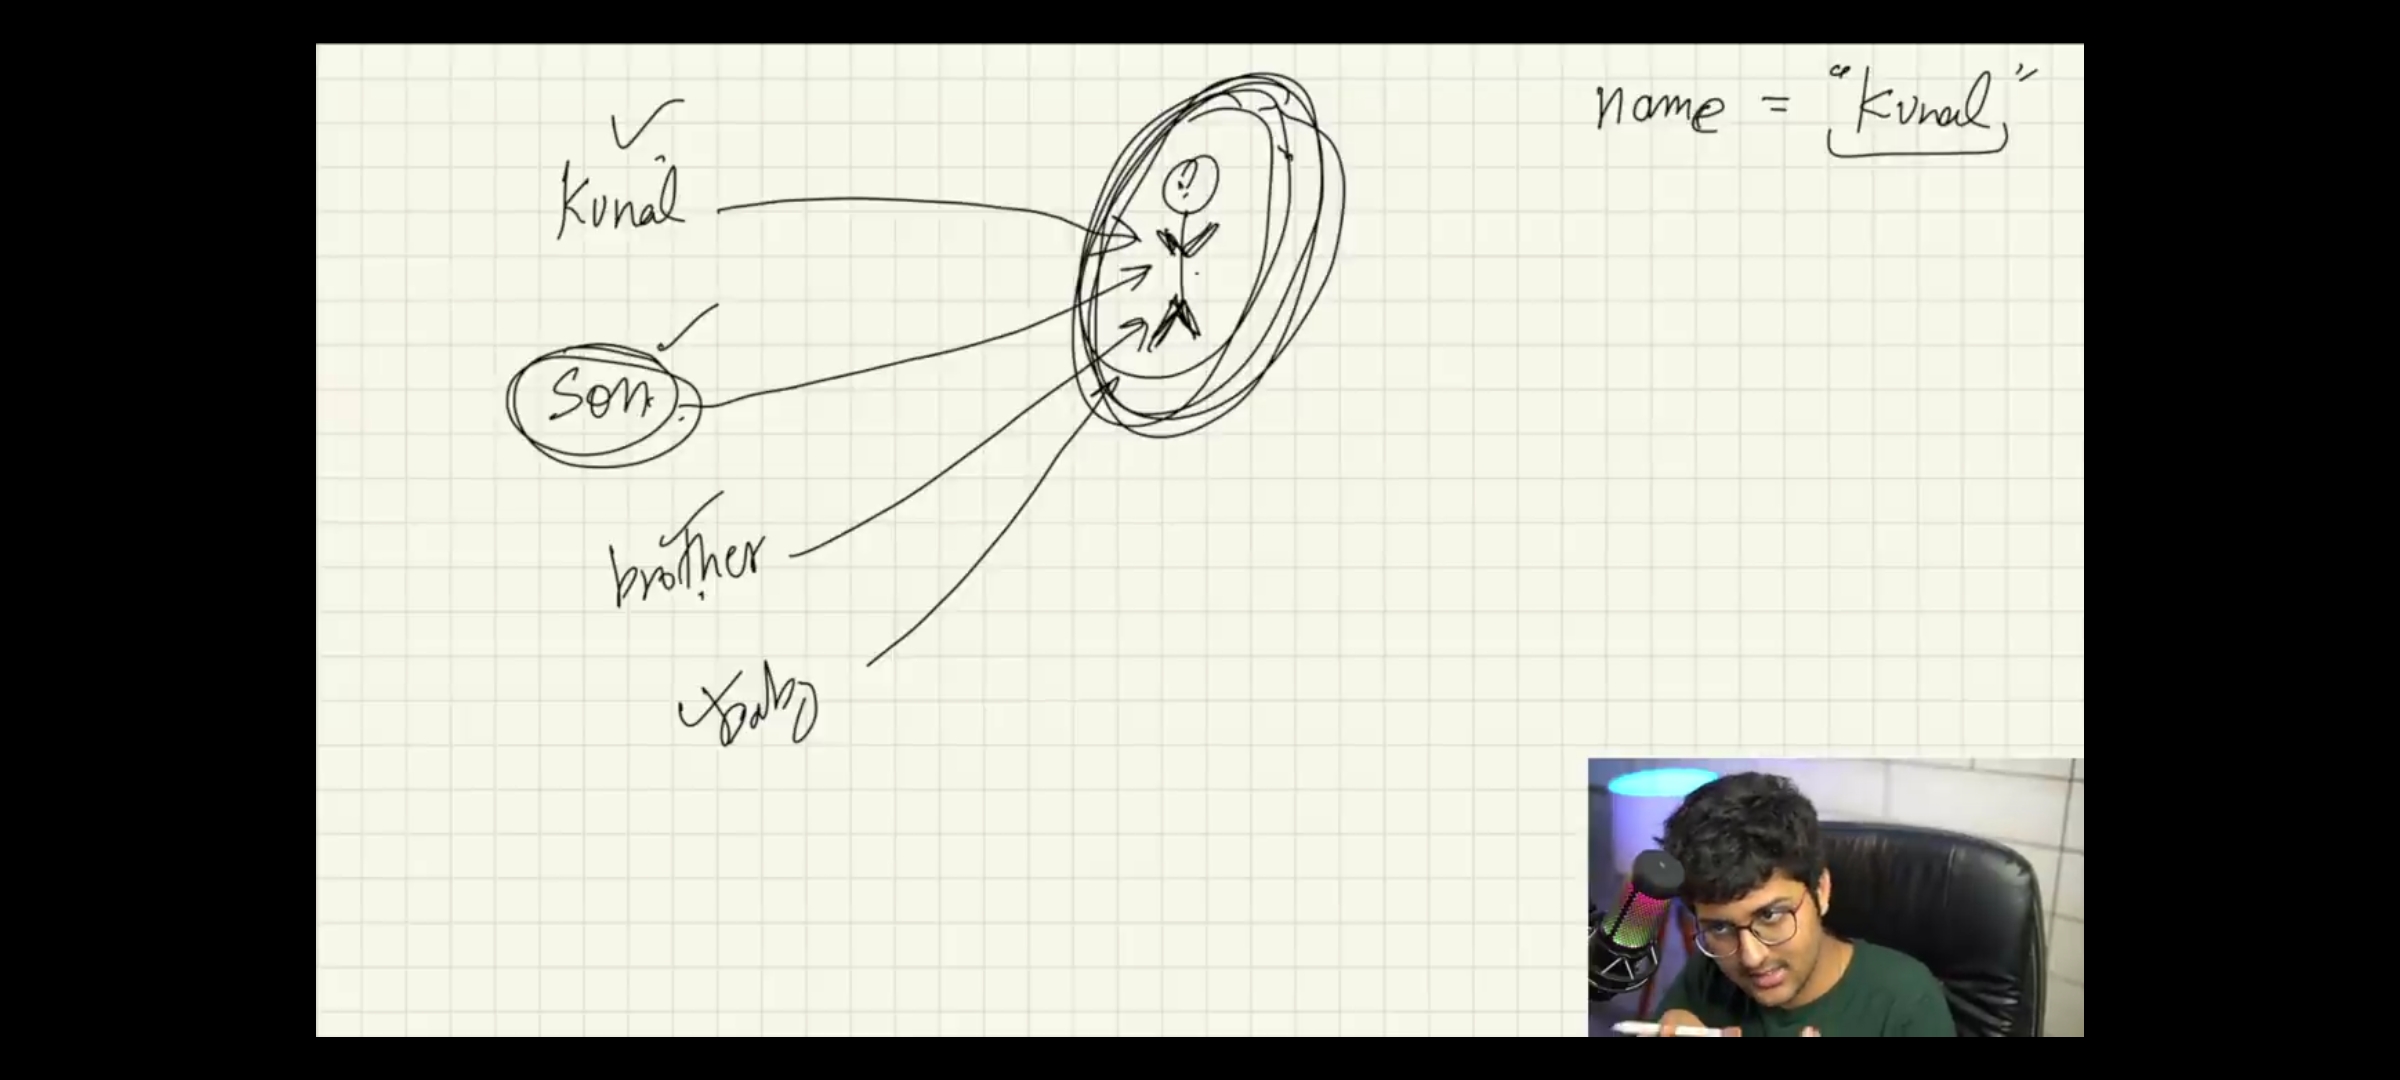 name = "Kunal"
Kunal
son
brother
baby